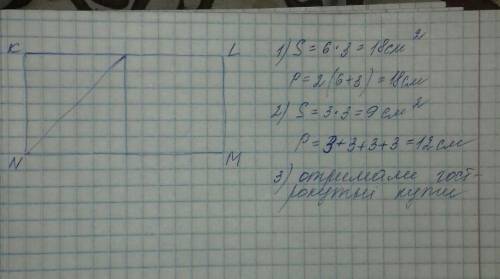 K L
N M
1) S = 6·3 = 18см²
P = 2(6+3) = 18см
2) S = 3·3 = 9см²
P = 3+3+3+3 = 12см
3) отримали гост-
рокутні кути